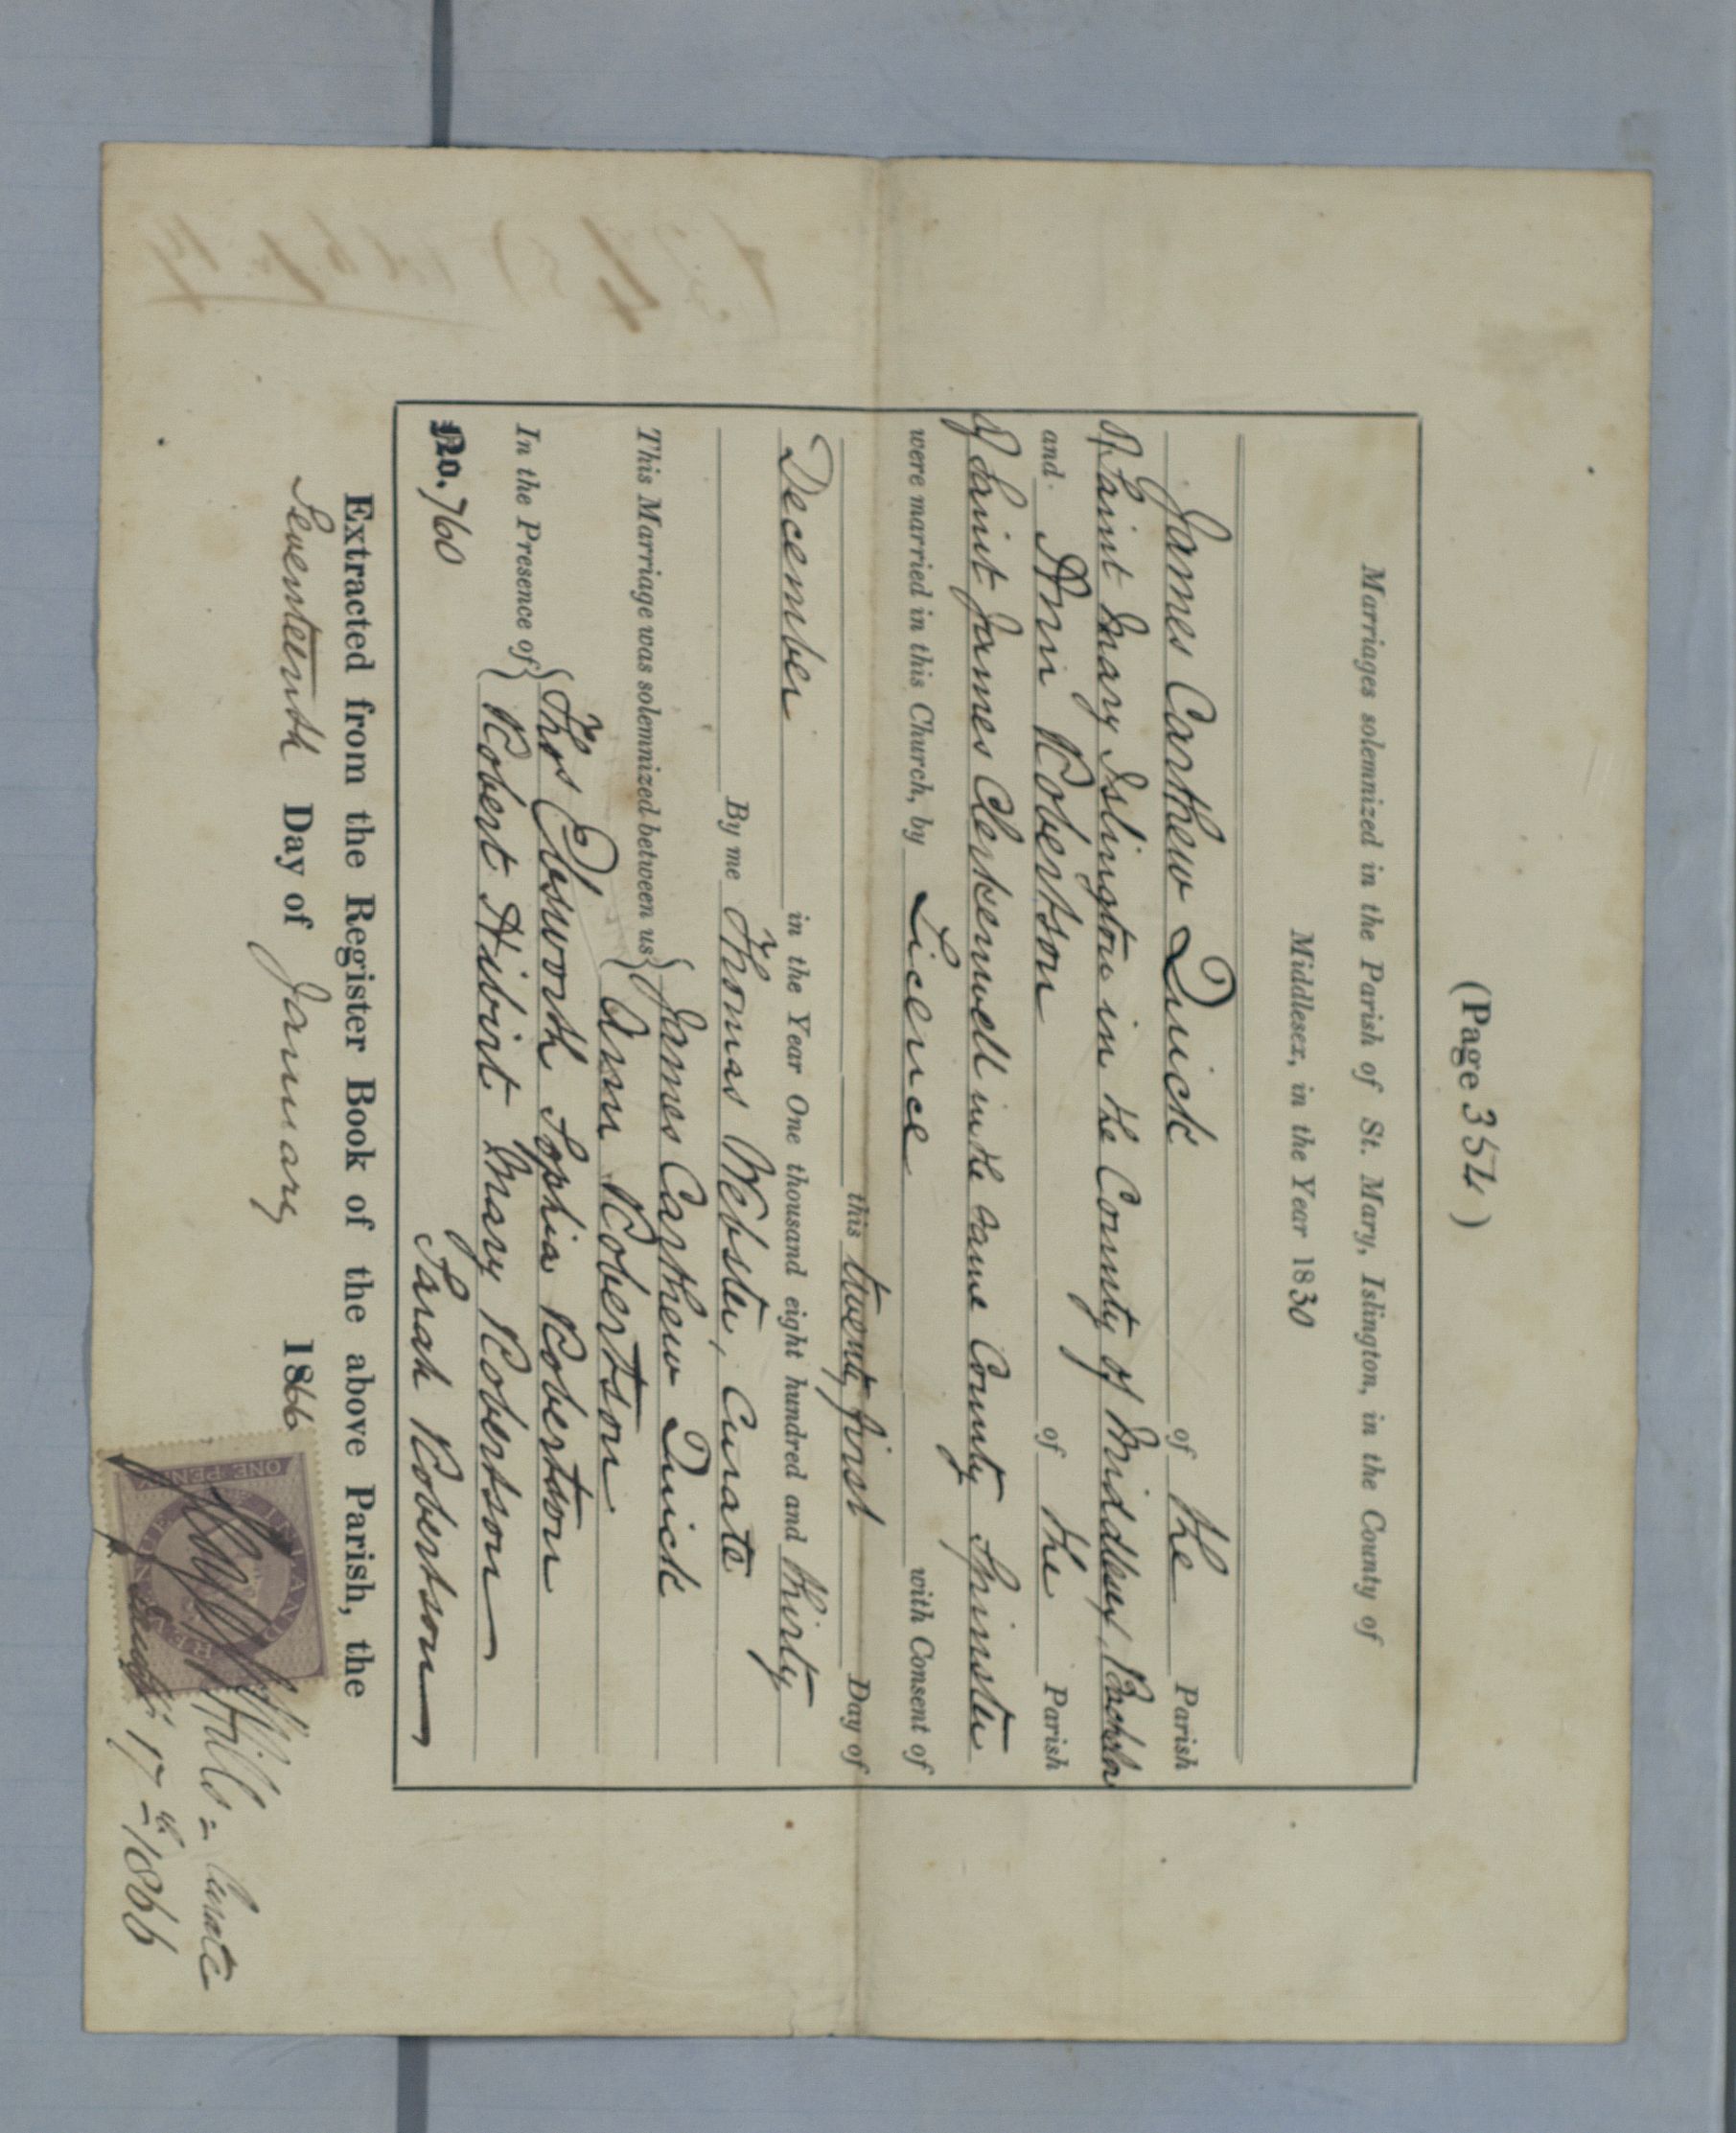 (Page 354)
Marriages solemnized in the Parish of St. Mary, Islington, in the County of
Middlesex, in the Year 1830
James Carthew Quick of the Parish
of Saint Mary Islington in the County of Middlesex, Bachelor
and Ann Robertson of the Parish
of Saint James Clerkenwell in the same County Spinster
were married in this Church, by Licence with Consent of
this twenty first Day of
December in the Year One thousand eight hundred and thirty
By me Thomas Webster, Curate
This Marriage was solemnized between us { James Carthew Quick
Ann Robertson
In the Presence of { Thos Ebsworth Sophia Robertson
Robert Hibirt Mary Robertson
No. 760 Sarah Robertson
Extracted from the Register Book of the above Parish, the
Seventeenth Day of January 1866
ONE PENNY
INLAND REVENUE
Hills = Curate
17th 1866